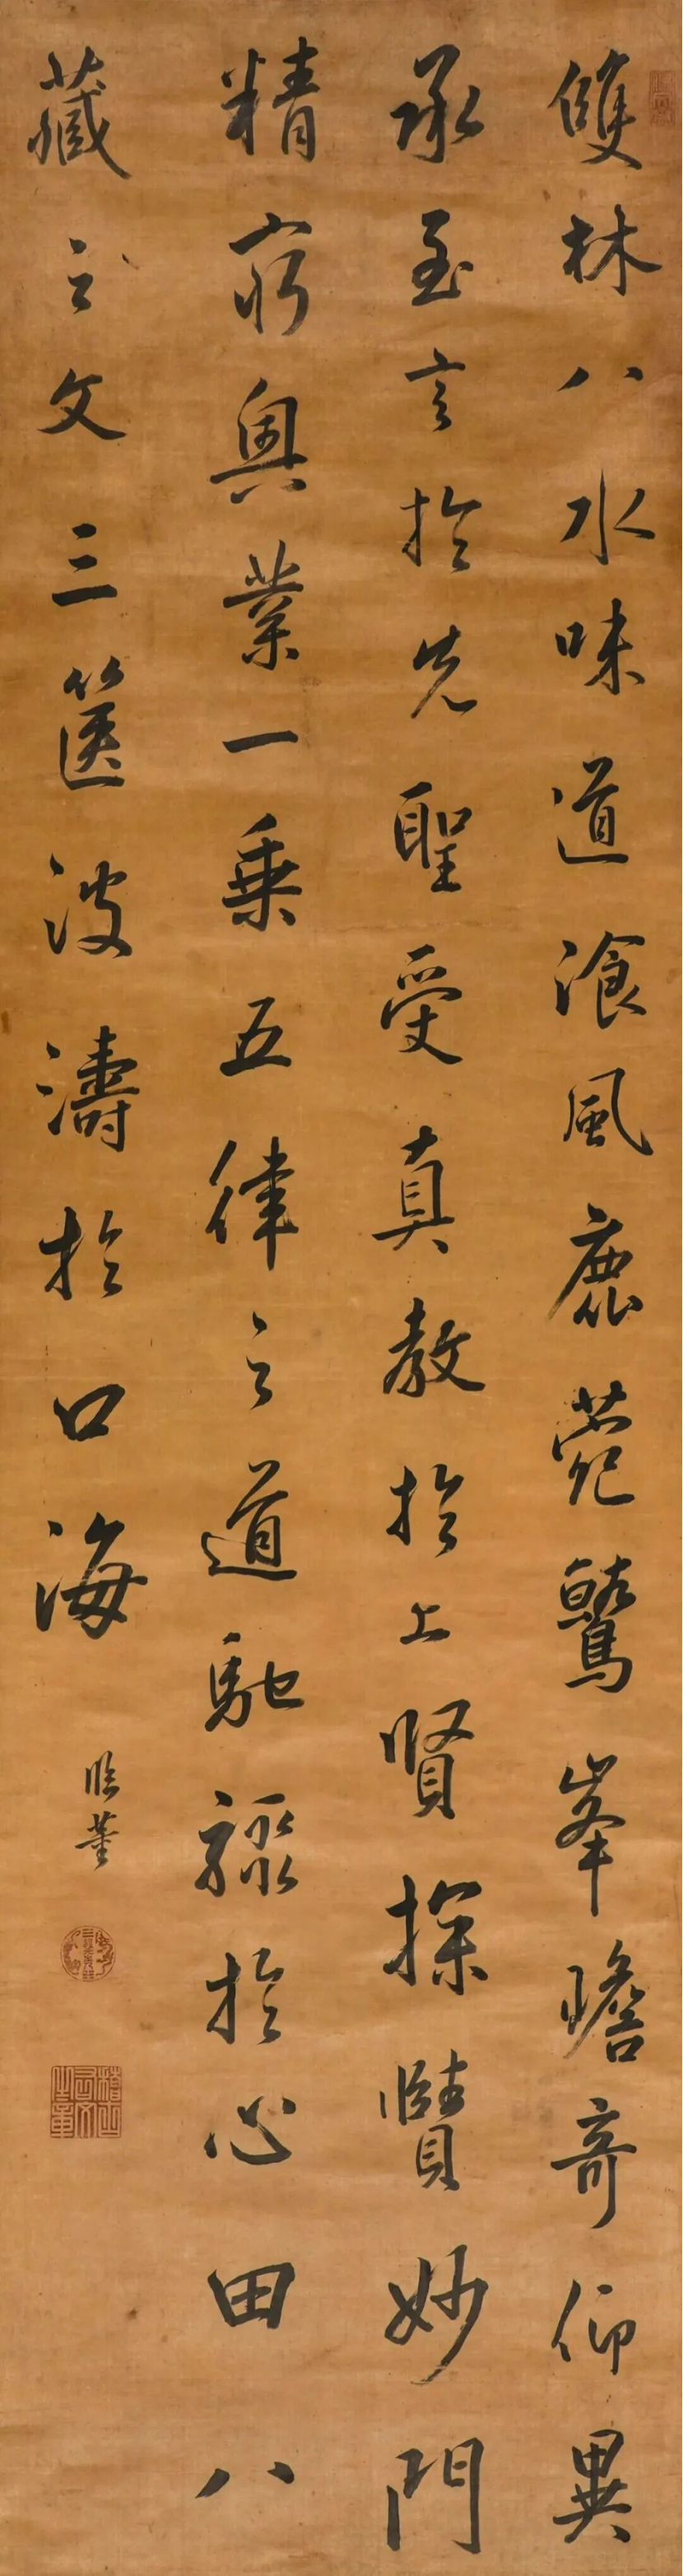 雙林八水味道湌風鹿菀鷲峯瞻奇仰異
承至言於先聖受真教於上賢探賾妙門
精窮奧業一乗五律之道馳驟於心田八
藏之文三篋波濤於口海
臨董